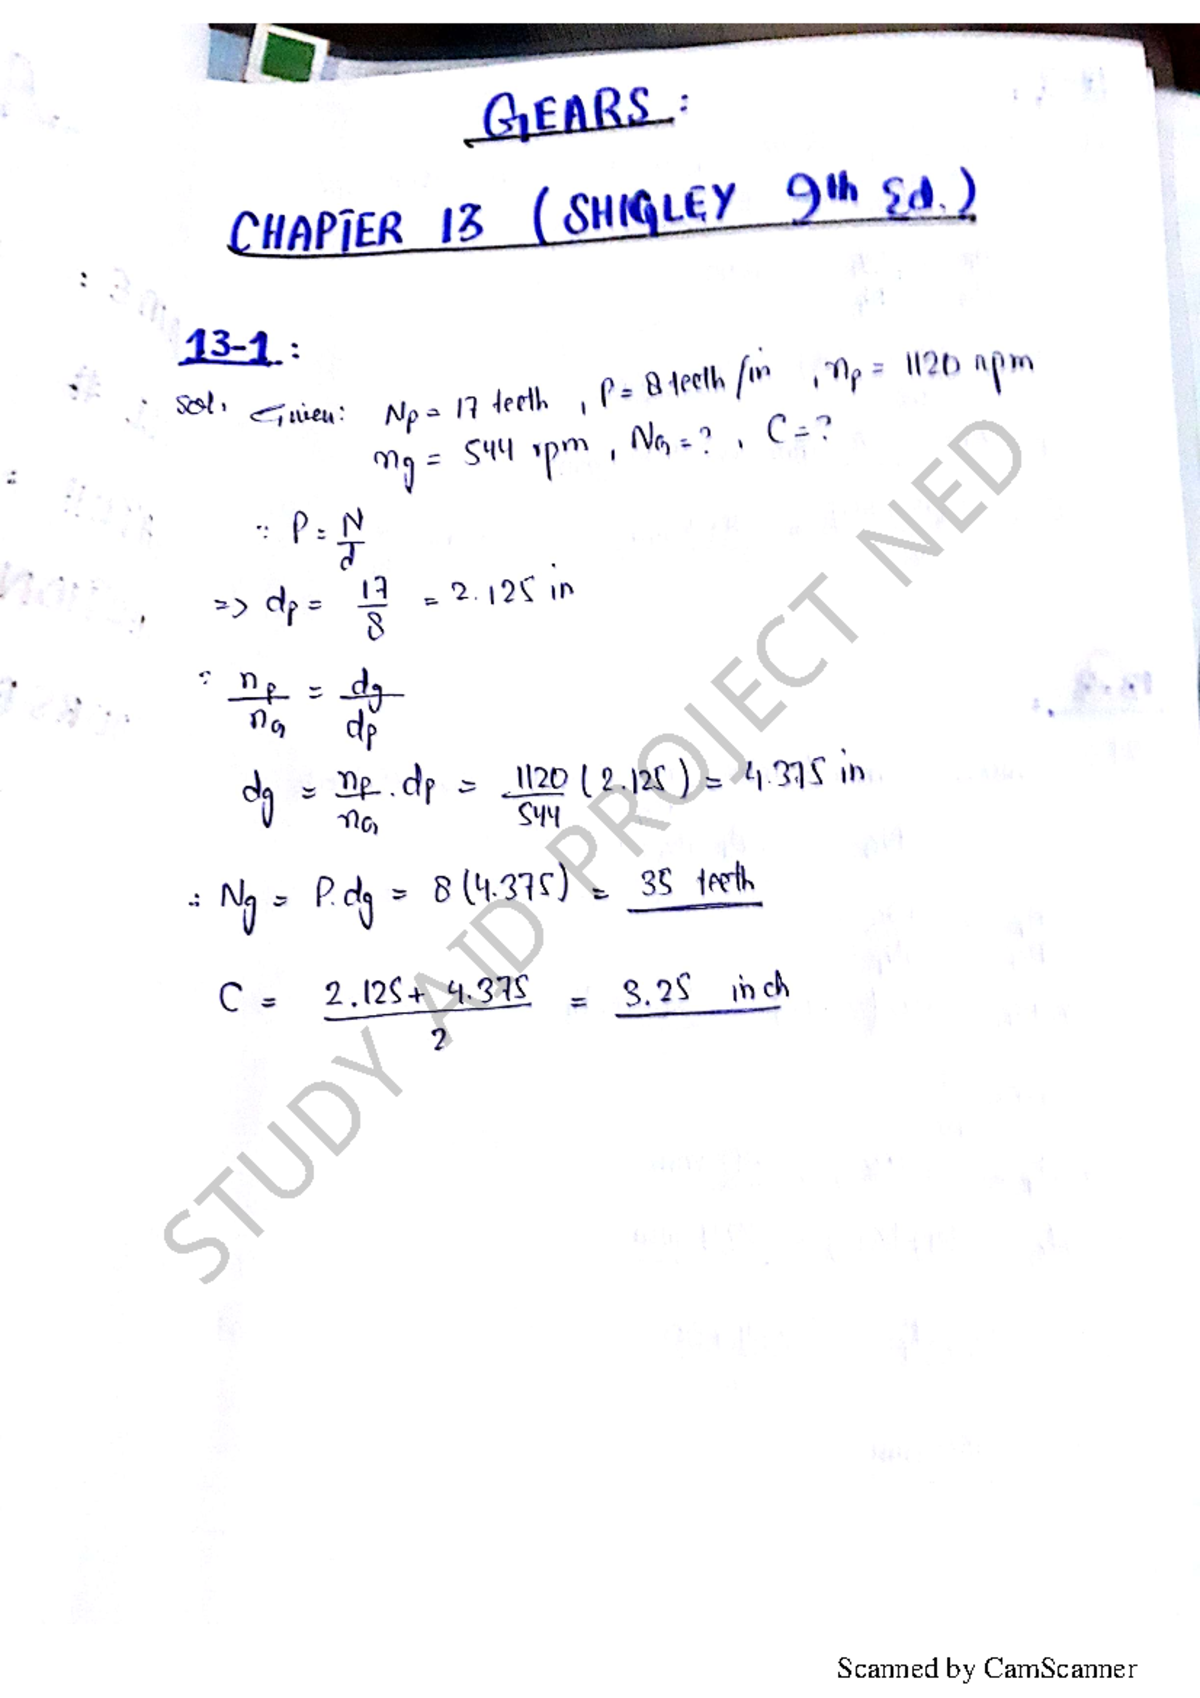 GEARS:
CHAPTER 13 (SHIGLEY 9th Ed.)
13-1:
Sol. Given: Np = 17 teeth, P = 8 teeth/in, np = 1120 rpm
ng = 544 rpm, NG = ?, C = ?
∵ P = N/d
=> dp = 17/8 = 2.125 in
∵ np/nG = dg/dp
dg = np/nG . dp = 1120/544 (2.125) = 4.375 in
∴ Ng = P.dg = 8(4.375) = 35 teeth
C = 2.125 + 4.375 / 2 = 3.25 inch
STUDY AID PROJECT NED
Scanned by CamScanner